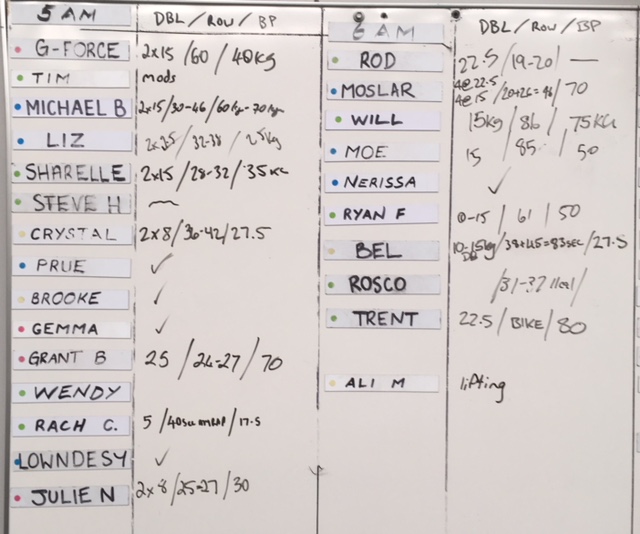 5 AM DBL/ROW/BP
G-FORCE 2x15/60/40kg
TIM mods
MICHAEL B 2x15/30-46/60kg-70kg
LIZ 32-38
SHARELLE 2x15/28-32/35KG
STEVE H
CRYSTAL 2x8/36-42/27.5
PRUE ✓
BROOKE ✓
GEMMA ✓
GRANT B 25/24-27/70
WENDY
RACH C. 5/40sec /17.5
LOWNDESY ✓
JULIE N 2x8/25-27/30
6 AM DBL/ROW/BP
ROD 22.5/19-20/—
MOSLAR 4@22.5 4@15/20+26=46/70
WILL 15kg/86/75KG
MOE 15 85 50
NERISSA ✓
RYAN F 10-15/61/50
BEL 10-15kg DB/38+45=83sec/27.5
ROSCO /31-32 /
TRENT 22.5/BIKE/80
ALI M lifting